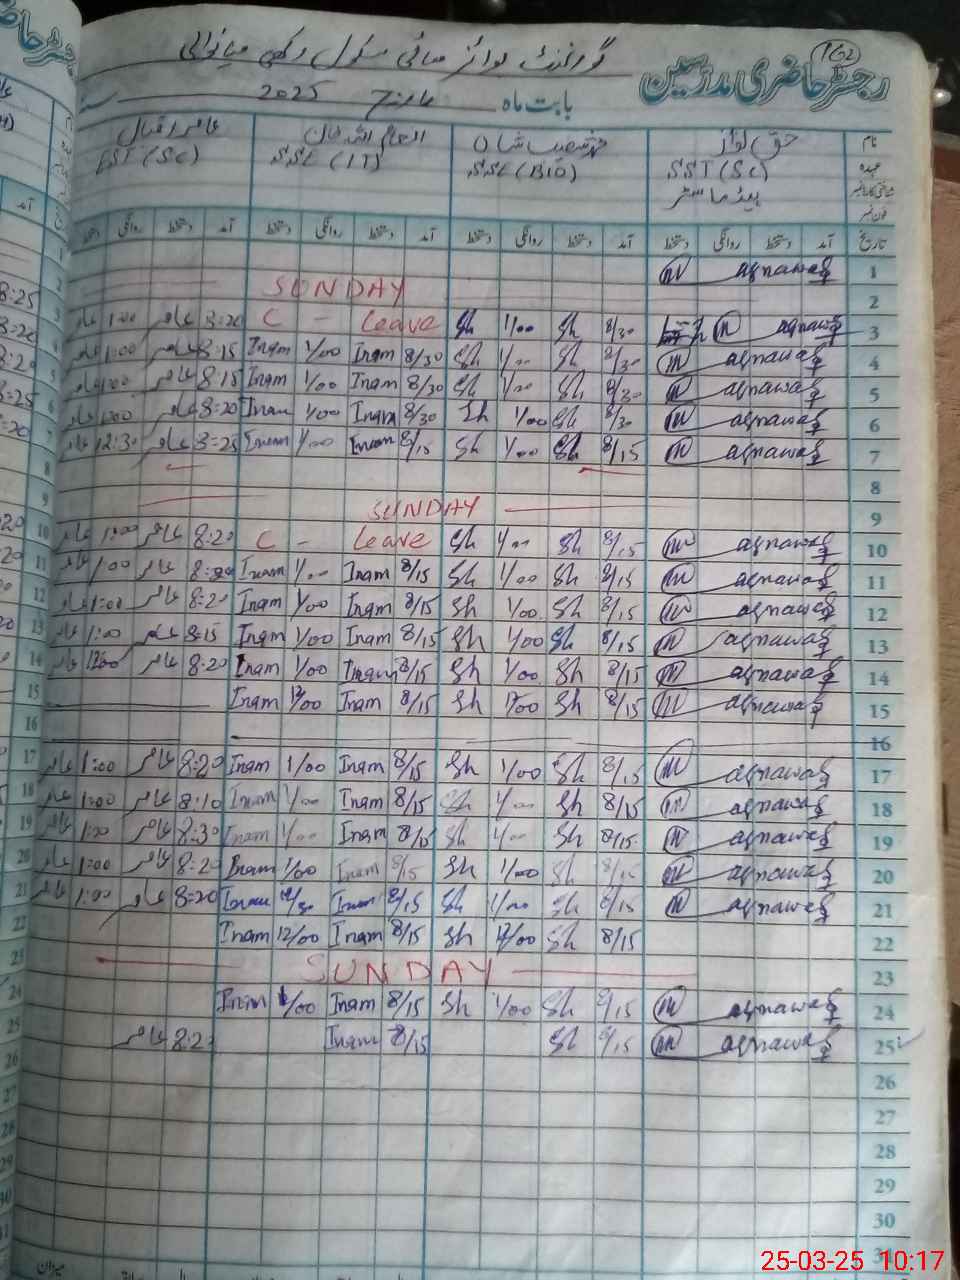 162
رجسٹر حاضری مدرسین
گورنمنٹ بوائز ہائی سکول رکھی میانوالی
بابت ماہ مارچ 2025 سنہ
نام حق نواز انعام اللہ خان عامر اقبال
عہدہ SST (Sc) SSE (BIO) SSE (IT) EST (Sc)
ہیڈ ماسٹر
فون نمبر
تاریخ آمد دستخط روانگی دستخط آمد دستخط روانگی دستخط آمد دستخط روانگی دستخط آمد دستخط روانگی دستخط
1 aqnawaz
2 SUNDAY
عامر 1:00 عامر 8:20 C - Leave Sh 1/00 Sh 8/30 aqnawaz 3
عامر 1:00 عامر 8:15 Inam 1/00 Inam 8/30 Sh 1/00 Sh 8/30 aqnawaz 4
عامر 1:00 عامر 8:15 Inam 1/00 Inam 8/30 Sh 1/00 Sh 8/30 aqnawaz 5
عامر 1:00 عامر 8:20 Inam 1/00 Inam 8/30 Sh 1/00 Sh 8/30 aqnawaz 6
عامر 12:30 عامر 8:25 Inam 1/00 Inam 8/15 Sh 1/00 Sh 8/15 aqnawaz 7
8
SUNDAY 9
عامر 1:00 عامر 8:20 C - Leave Sh 1/00 Sh 8/15 aqnawaz 10
عامر 1:00 عامر Inam 1/00 Inam 8/15 Sh 1/00 Sh 8/15 aqnawaz 11
عامر 1:00 عامر 8:20 Inam 1/00 Inam 8/15 Sh 1/00 Sh 8/15 aqnawaz 12
عامر 1:00 عامر 8:15 Inam 1/00 Inam 8/15 Sh 1/00 Sh 8/15 aqnawaz 13
عامر 1200 عامر 8:20 Inam 1/00 Inam 8/15 Sh 1/00 Sh 8/15 aqnawaz 14
Inam 12/00 Inam 8/15 Sh 12/00 Sh 8/15 aqnawaz 15
16
عامر 1:00 عامر 8:20 Inam 1/00 Inam 8/15 Sh 1/00 Sh 8/15 aqnawaz 17
عامر 1:00 عامر 8:10 Inam 1/00 Inam 8/15 Sh 1/00 Sh 8/15 aqnawaz 18
عامر 1:00 عامر 8:30 Inam 1/00 Inam 8/15 Sh 1/00 Sh 8/15 aqnawaz 19
عامر 1:00 عامر 8:20 Inam 1/00 Inam 8/15 Sh 1/00 Sh 8/15 aqnawaz 20
عامر 1:00 عامر 8:20 Inam Inam 8/15 Sh 1/00 Sh 8/15 aqnawaz 21
Inam 12/00 Inam 8/15 Sh 12/00 Sh 8/15 22
SUNDAY 23
Inam 1/00 Inam 8/15 Sh 1/00 Sh 8/15 aqnawaz 24
عامر Inam 8/15 Sh 8/15 aqnawaz 25
26
27
28
29
30
31
میزان
25-03-25 10:17